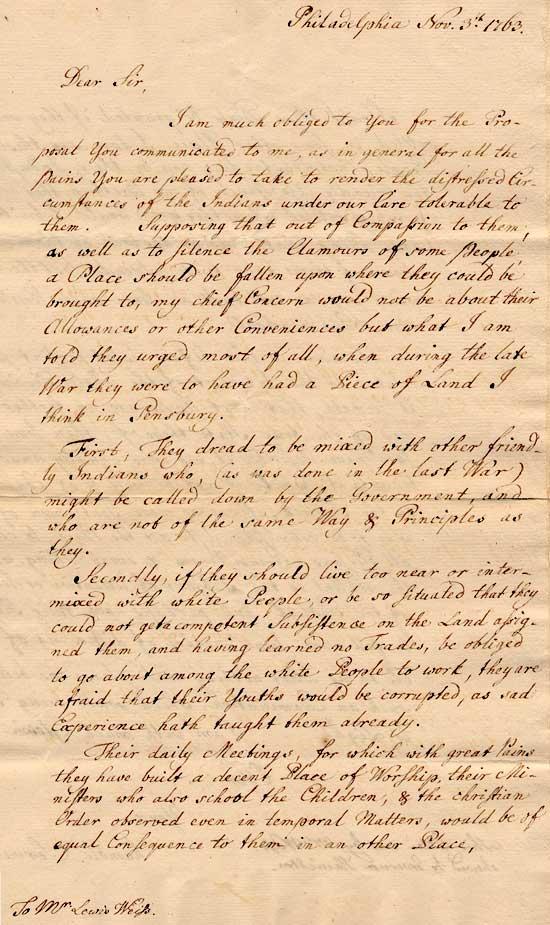 Philadelphia Nov. 3th 1763.
Dear Sir,
I am much obliged to You for the Pro-
posal You communicated to me, as in general for all the
Pains You are pleased to take to render the distressed Cir-
cumstances of the Indians under our Care tolerable to
them. Supposing that out of Compassion to them,
as well as to silence the Clamours of some People,
a Place should be fallen upon where they could be
brought to, my chief Concern would not be about their
Allowances or other Conveniences but what I am
told they urged most of all, when during the late
War they were to have had a Piece of Land I
think in Pensbury.
First, They dread to be mixed with other friend-
ly Indians who, (as was done in the last War)
might be called down by the Government, and
who are not of the same Way & Principles as
they.
Secondly, if they should live too near or inter-
mixed with white People, or be so situated that they
could not get a competent Subsistence on the Land assig-
ned them, and having learned no Trades, be obliged
to go about among the white People to work, they are
afraid that their Youths would be corrupted, as sad
Experience hath taught them already.
Their daily Meetings, for which with great Pains
they have built a decent Place of Worship, their Mi-
nisters who also school the Children, & the christian
Order observed even in temporal Matters, would be of
equal Consequence to them in an other Place,
To Mr. Lewis Weiss.